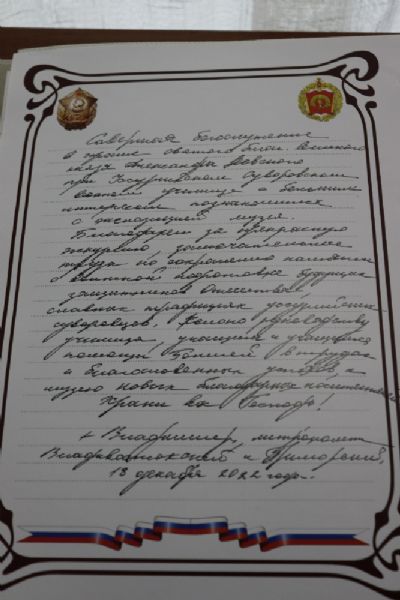 Совершая богослужение
в храме святого благ. великого
князя Александра Невского
при Уссурийском Суворовском
военном училище с большим
интересом познакомился
с экспозицией музея.
Благодарен за прекрасную
экскурсию, замечательные
труды по сохранению памяти
о воинской подготовке будущих
защитников Отечества
славных традициях уссурийских
суворовцев. Желаю руководству
училища, учащим и учащимся
помощи Божией в трудах
и благословенных успехов и
музею новых благодарных посетителей
Храни вас Господь!
+ Владимир, митрополит
Владивостокский и Приморский.
13 декабря 2022 года.